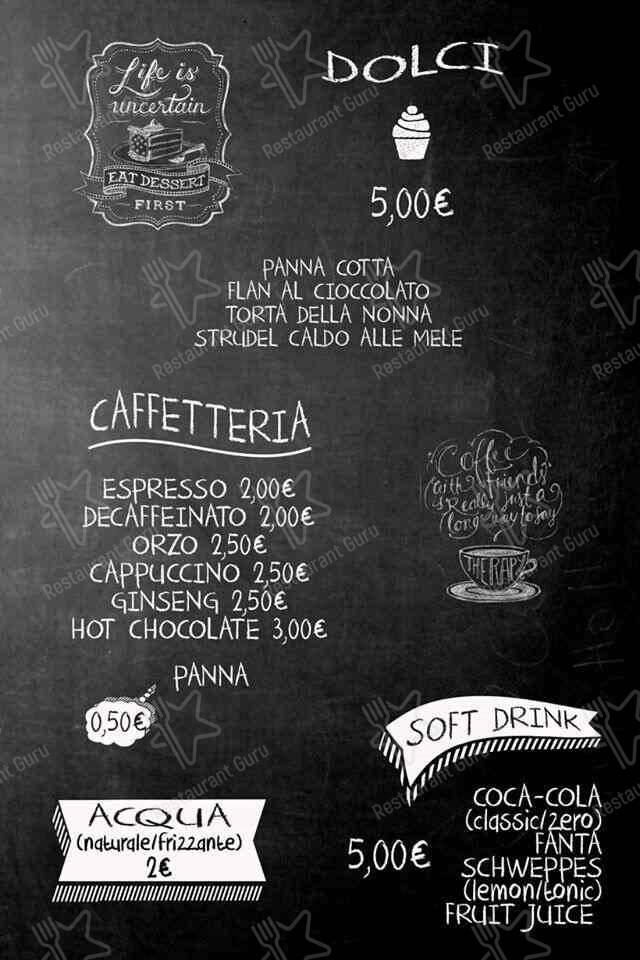 Life is
uncertain
EAT DESSERT
FIRST
DOLCI
5,00€
PANNA COTTA
FLAN AL CIOCCOLATO
TORTA DELLA NONNA
STRUDEL CALDO ALLE MELE
CAFFETTERIA
ESPRESSO 2,00€
DECAFFEINATO 2,00€
ORZO 2,50€
CAPPUCCINO 2,50€
GINSENG 2,50€
HOT CHOCOLATE 3,00€
PANNA
0,50€
Coffee
with friends
is Really just a
long way to say
THERAPY
ACQUA
(naturale/frizzante)
2€
SOFT DRINK
5,00€
COCA-COLA
(classic/zero)
FANTA
SCHWEPPES
(lemon/tonic)
FRUIT JUICE
Restaurant Guru